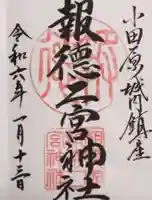 小田原城内鎮座
報徳二宮神社
令和六年一月十三日